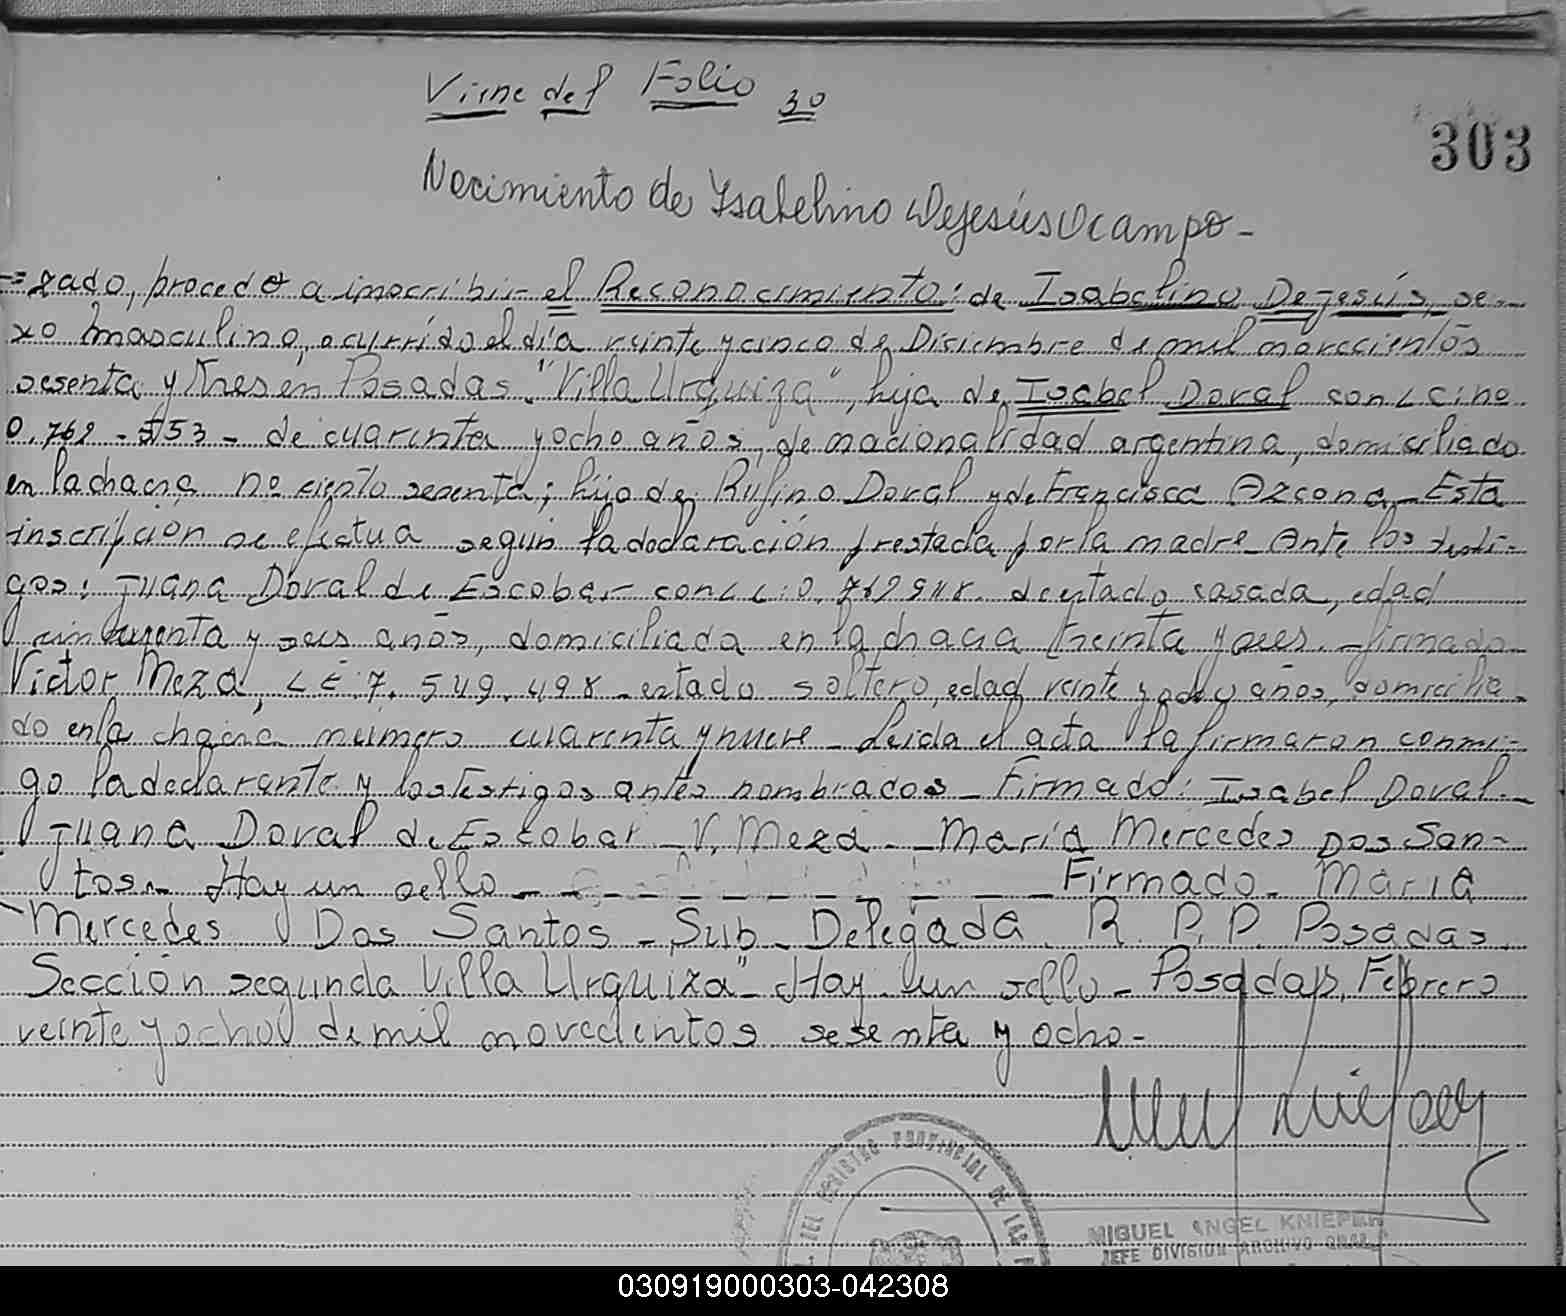 Viene del Folio 30
303
Nacimiento de Ysabelino Dejesús Ocampo -
= zado, procedo a inscribir el Reconocimiento: de Isabelino Dejesús, se-
xo masculino, ocurrido el día veinte y cinco de Diciembre de mil novecientos
sesenta y tres en Posadas "Villa Urquiza", hijo de Isabel Doval con L C. no.
de cuarenta y ocho años, de nacionalidad argentina, domiciliado
en la chacra no ciento sesenta; hijo de Rufino Doval y de Francisca Azcona - Esta
inscripción se efectua según la declaración prestada por la madre - Ante los testi-
gos: Juana Doval de Escobar con L C: 0. de estado casada, edad
y seis años, domiciliada en la chacra treinta y seis. - firmado
Victor Meza, L E. 7. 549. 498 - estado soltero, edad veinte y años, domicilia-
do en la chacra número cuarenta y nueve - Leida el acta la firmaron conmi-
go la declarante y los testigos antes nombrados - Firmado: Isabel Doval -
Juana Doval de Escobar - V. Meza - - María Mercedes Dos San-
tos - Hay un sello - - - - - - - Firmado - Maria
Mercedes Dos Santos - Sub - Delegada R. P. P. Posadas.
Sección segunda Villa Urquiza" - Hay un sello - Posadas, Febrero
veinte y ocho de mil novecientos sesenta y ocho -
DEL REGISTRO PROVINCIAL DE LAS P
MIGUEL ANGEL KNIEPER
JEFE DIVISION ARCHIVO GRAL.
030919000303-042308